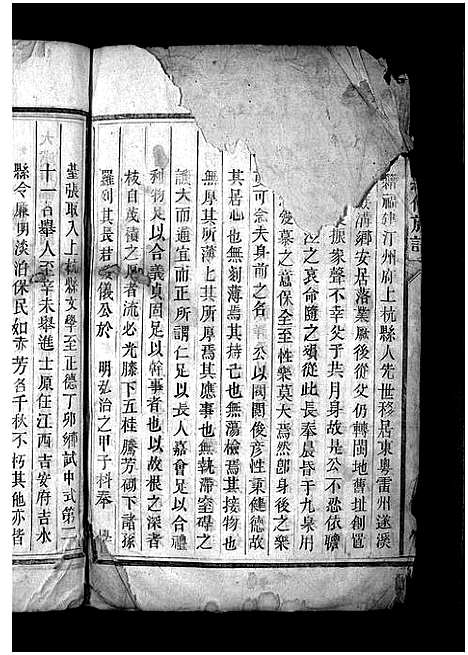 族譜
籍福建汀州府上杭縣人先世移居東粵雷州遂溪
溝鄉安居落業厥後從父仍轉閩地舊址創置
振家聲不幸父子共月身故是公不忍依戀
泣之哀命隨之殞從此長奉晨昏于九泉用
愛慕之意保全至性樂莫大焉然卽身後之樂
可念夫身前之各 公以閥閱俊彥性秉健德故
其居心也無刻薄焉其持己也無蕩檢焉其接物也
無厚其所薄上其所厚焉其應事也無執滯窒碍之
讀大而通宜而正所謂仁足以長人嘉會足以合禮
利物足以合義貞固足以幹事者也以故根之深者
枝自茂漬之厚者流必光膝下五桂騰芳砌下諸孫
羅列其長君 儀公於 明弘治之甲子科奉
臺張取入上杭縣文學至正德丁卯鄉試中式第二
十一名舉人至辛未舉進士原任江西吉安府吉水
縣令廉明淡治保民如赤芳名千秋不朽其他亦皆